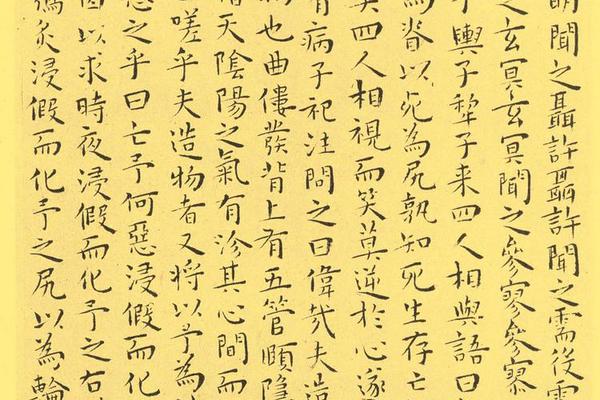 明聞之聶許聶許聞之需役
之玄冥玄冥聞之參寥參寥
子輿子犂子来四人相與語曰
為脊以死為尻孰知死生存亡
矣四人相視而笑莫逆於心遂
有病子祀往問之曰偉哉夫造
也曲僂發背上有五管頤隱
天陰陽之氣有沴其心間而
嗟乎夫造物者又將以予為
惡之乎曰亡予何惡浸假而化
因以求時夜浸假而化予之右
鴞炙浸假而化予之尻以為輪